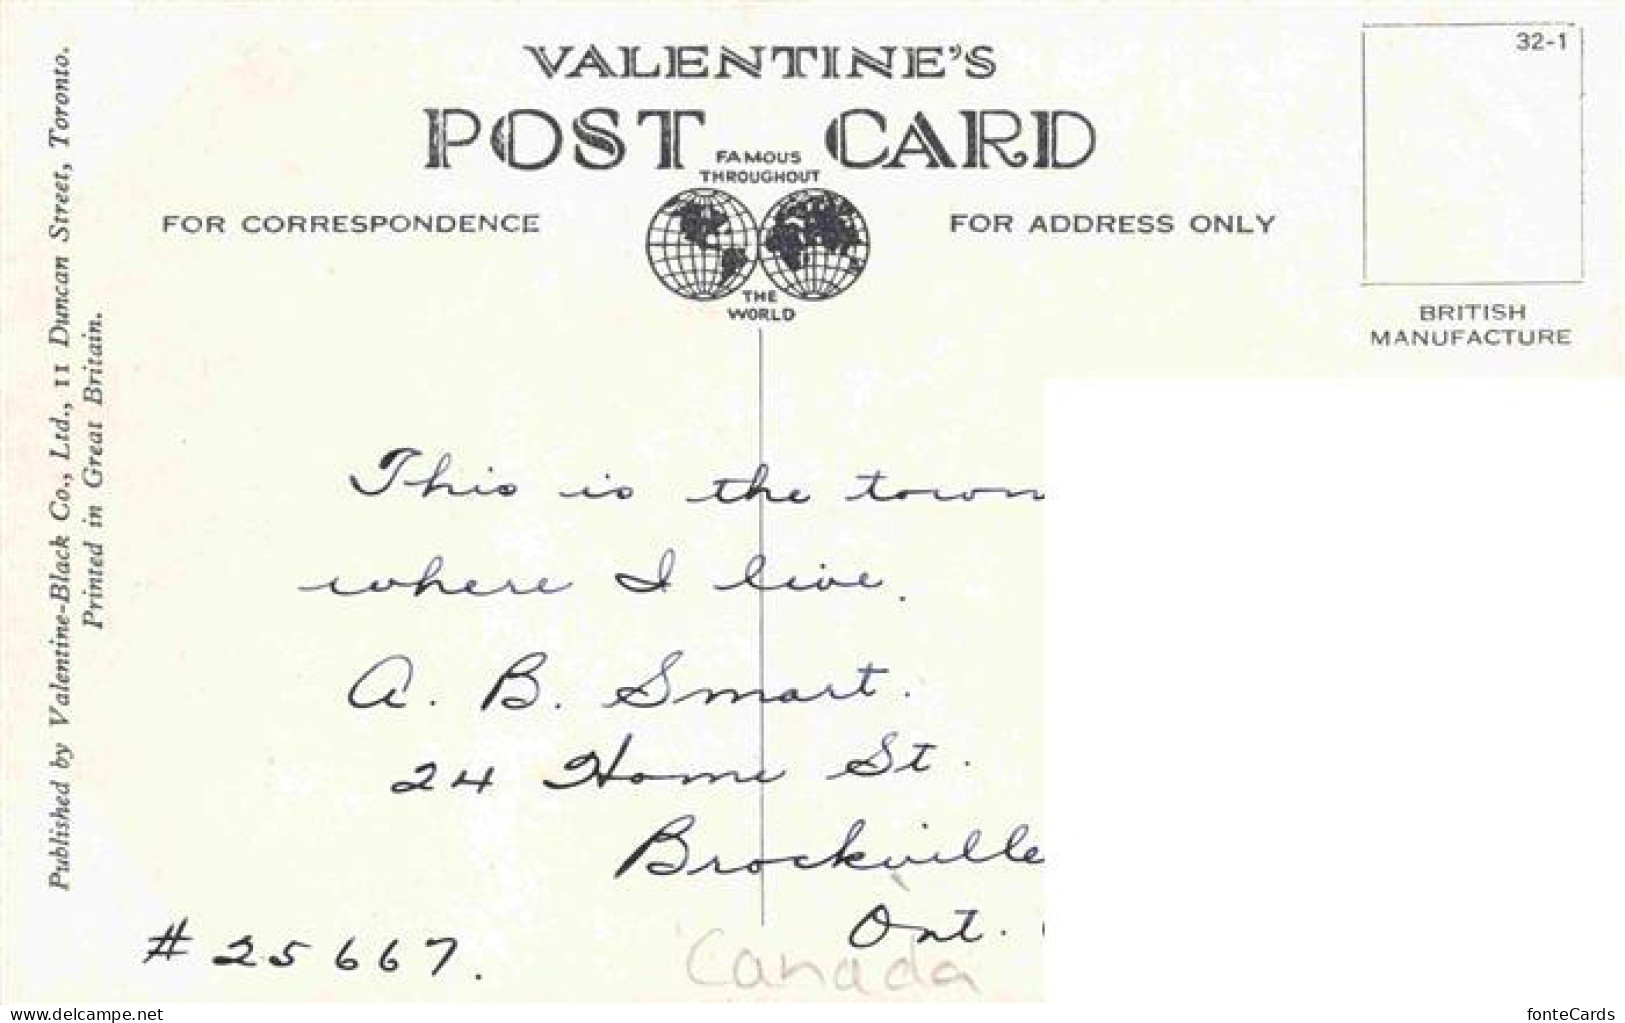 VALENTINE'S
POST CARD
FAMOUS
THROUGHOUT
THE
WORLD
FOR CORRESPONDENCE
FOR ADDRESS ONLY
32-1
BRITISH
MANUFACTURE
Published by Valentine-Black Co., Ltd., 11 Duncan Street, Toronto.
Printed in Great Britain.
This is the town
where I live.
A. B. Smart.
24 Home St.
Brockville
Ont.
Canada
# 25667.
delcampe.net
fonteCards